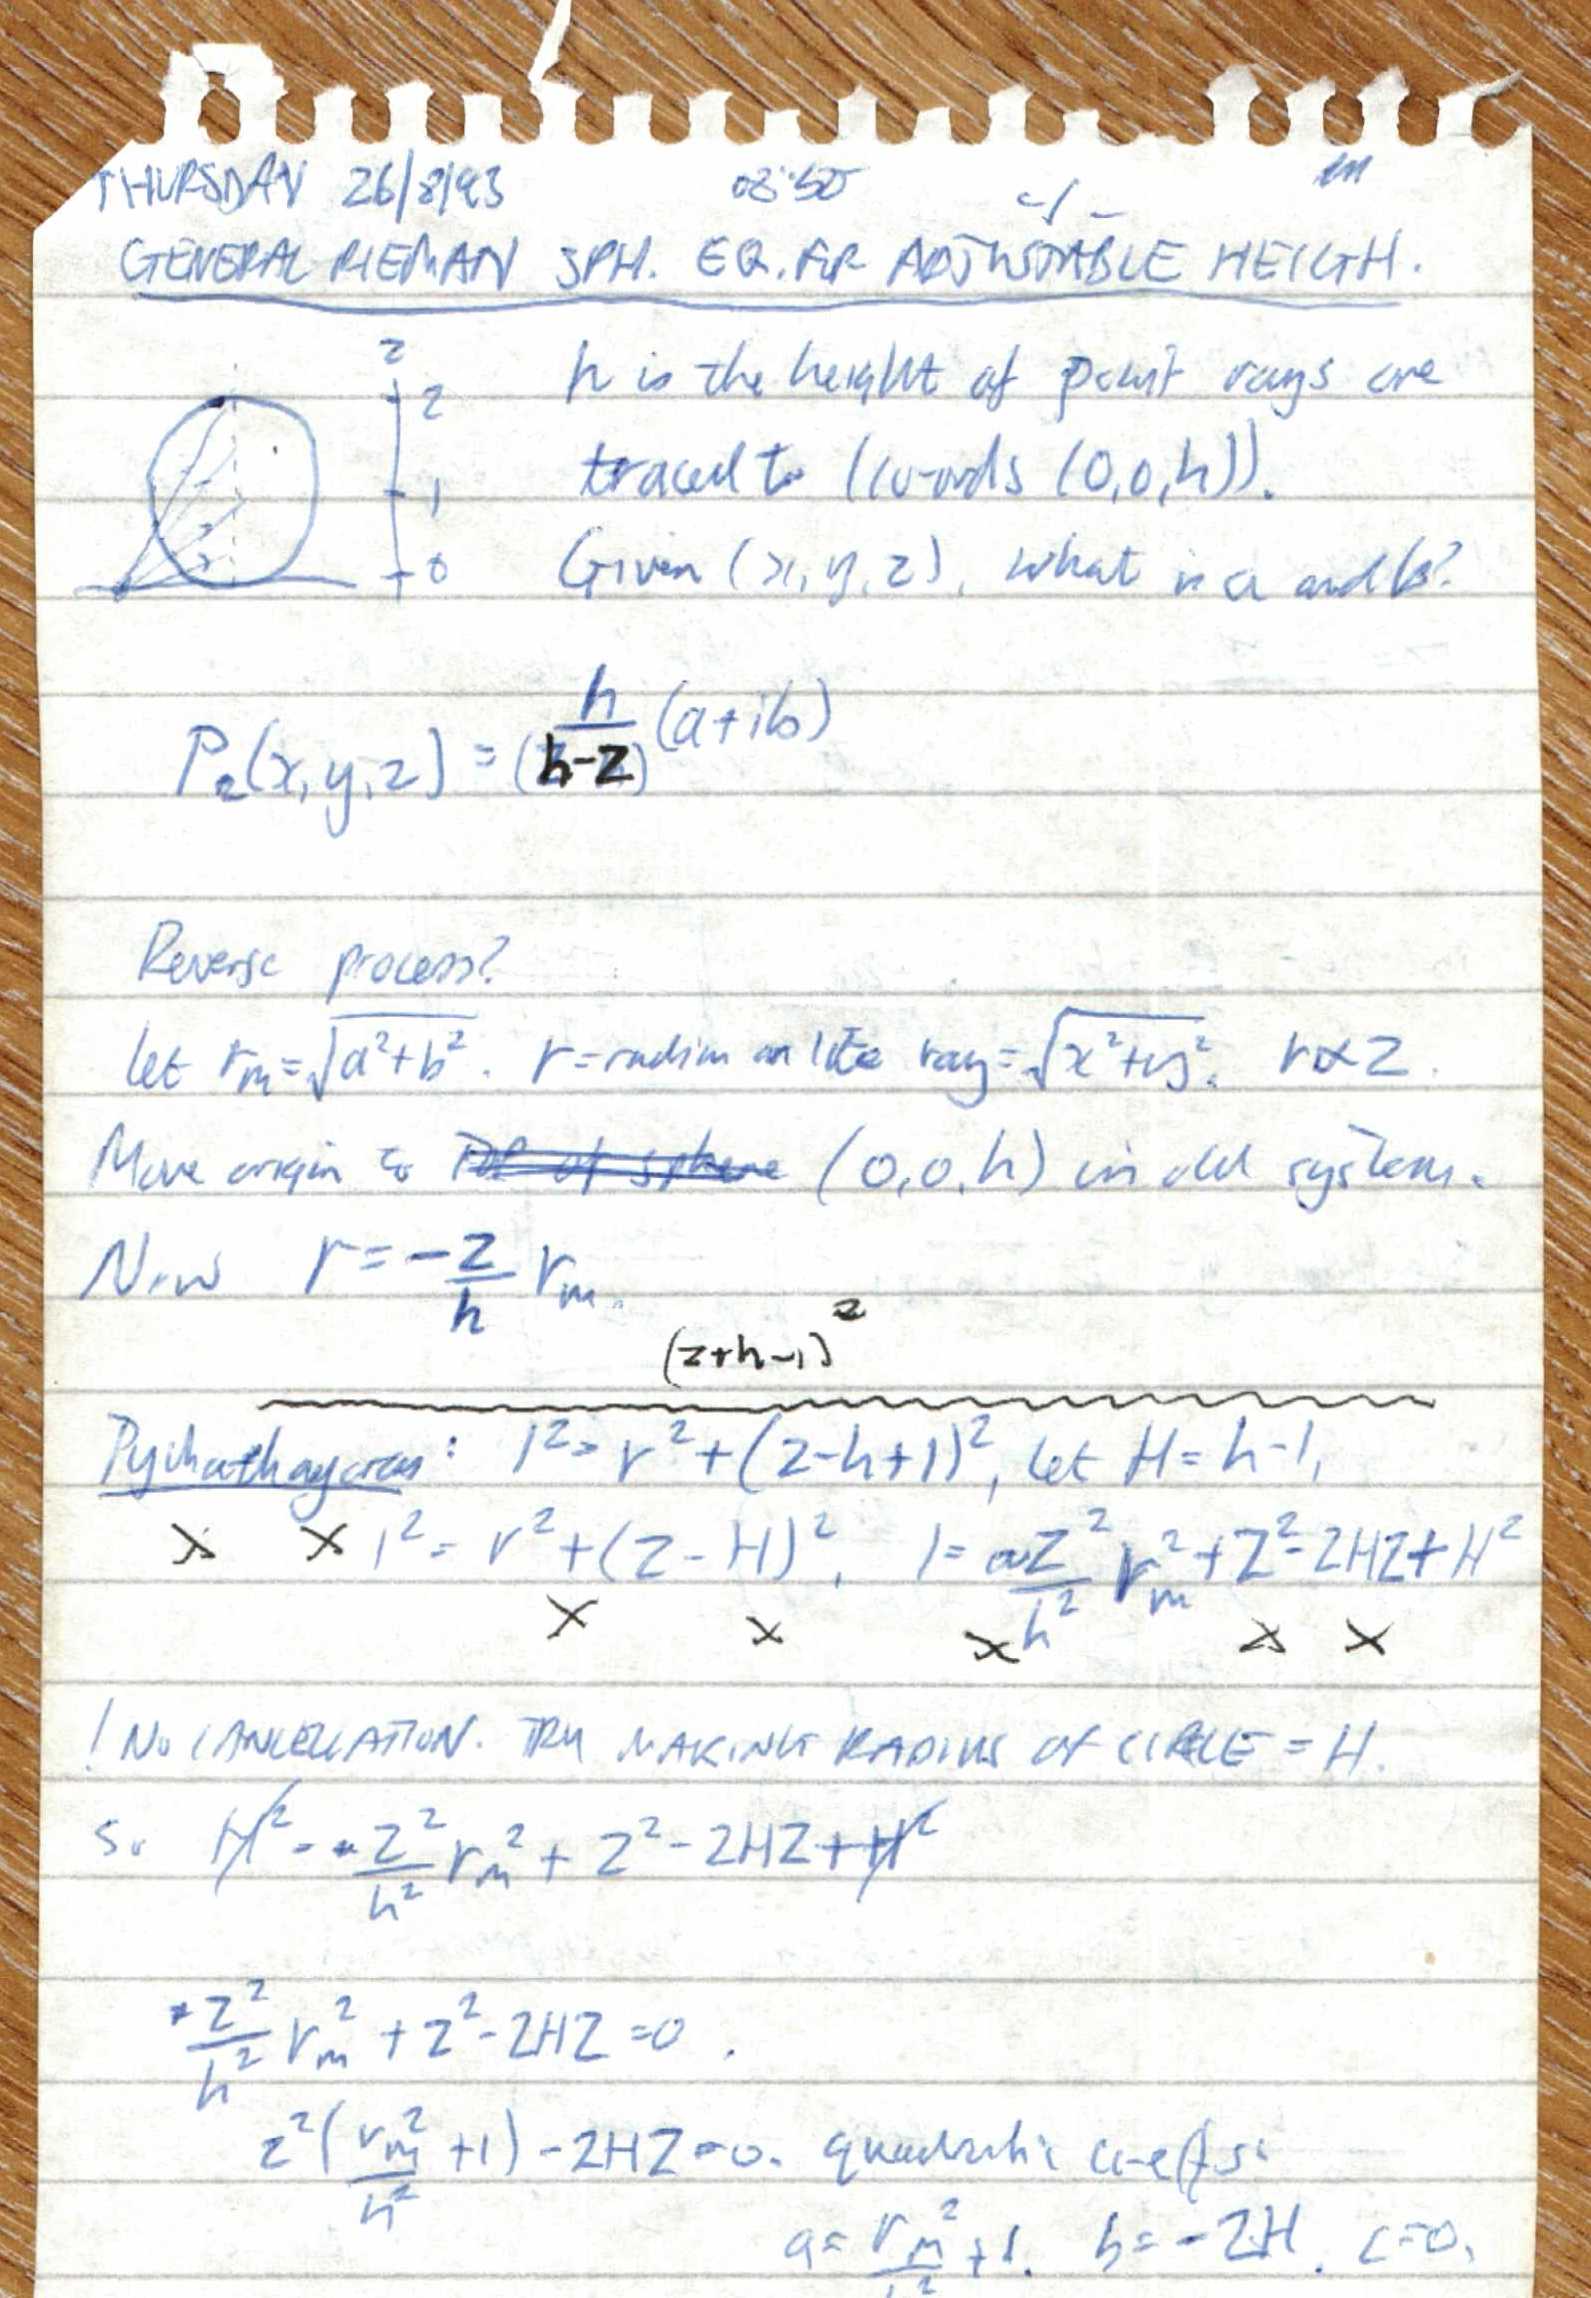 THURSDAY 26/8/93 08:50
GENERAL RIEMAN SPH. EQ. FOR ADJUSTABLE HEIGH.
z
2
1
0
h is the height of point rays are
traced to (co-ords (0,0,h)).
Given (x,y,z), what is a and b?
P₂(x,y,z) = h/(h-z) (a+ib)
Reverse process?
Let rₘ=√(a²+b²). r=radius on lite ray=√(x²+y²). r∝z.
Move origin to Top of sphere (0,0,h) in old system.
Now r=-z/h rₘ.
(z+h-1)²
Pythathagoras: 1²=r²+(z-h+1)², let H=h-1,
x x 1²=r²+(z-H)², 1= z²/h² rₘ²+z²-2Hz+H²
x x x x x
! NO CANCELLATION. TRY MAKING RADIUS OF CIRCLE = H.
So H²= z²/h² rₘ²+z²-2Hz+H²
z²/h² rₘ²+z²-2Hz=0.
z²(rₘ²/h²+1)-2Hz=0. quadratic co-effs:
a=rₘ²/h²+1. b=-2H. c=0.